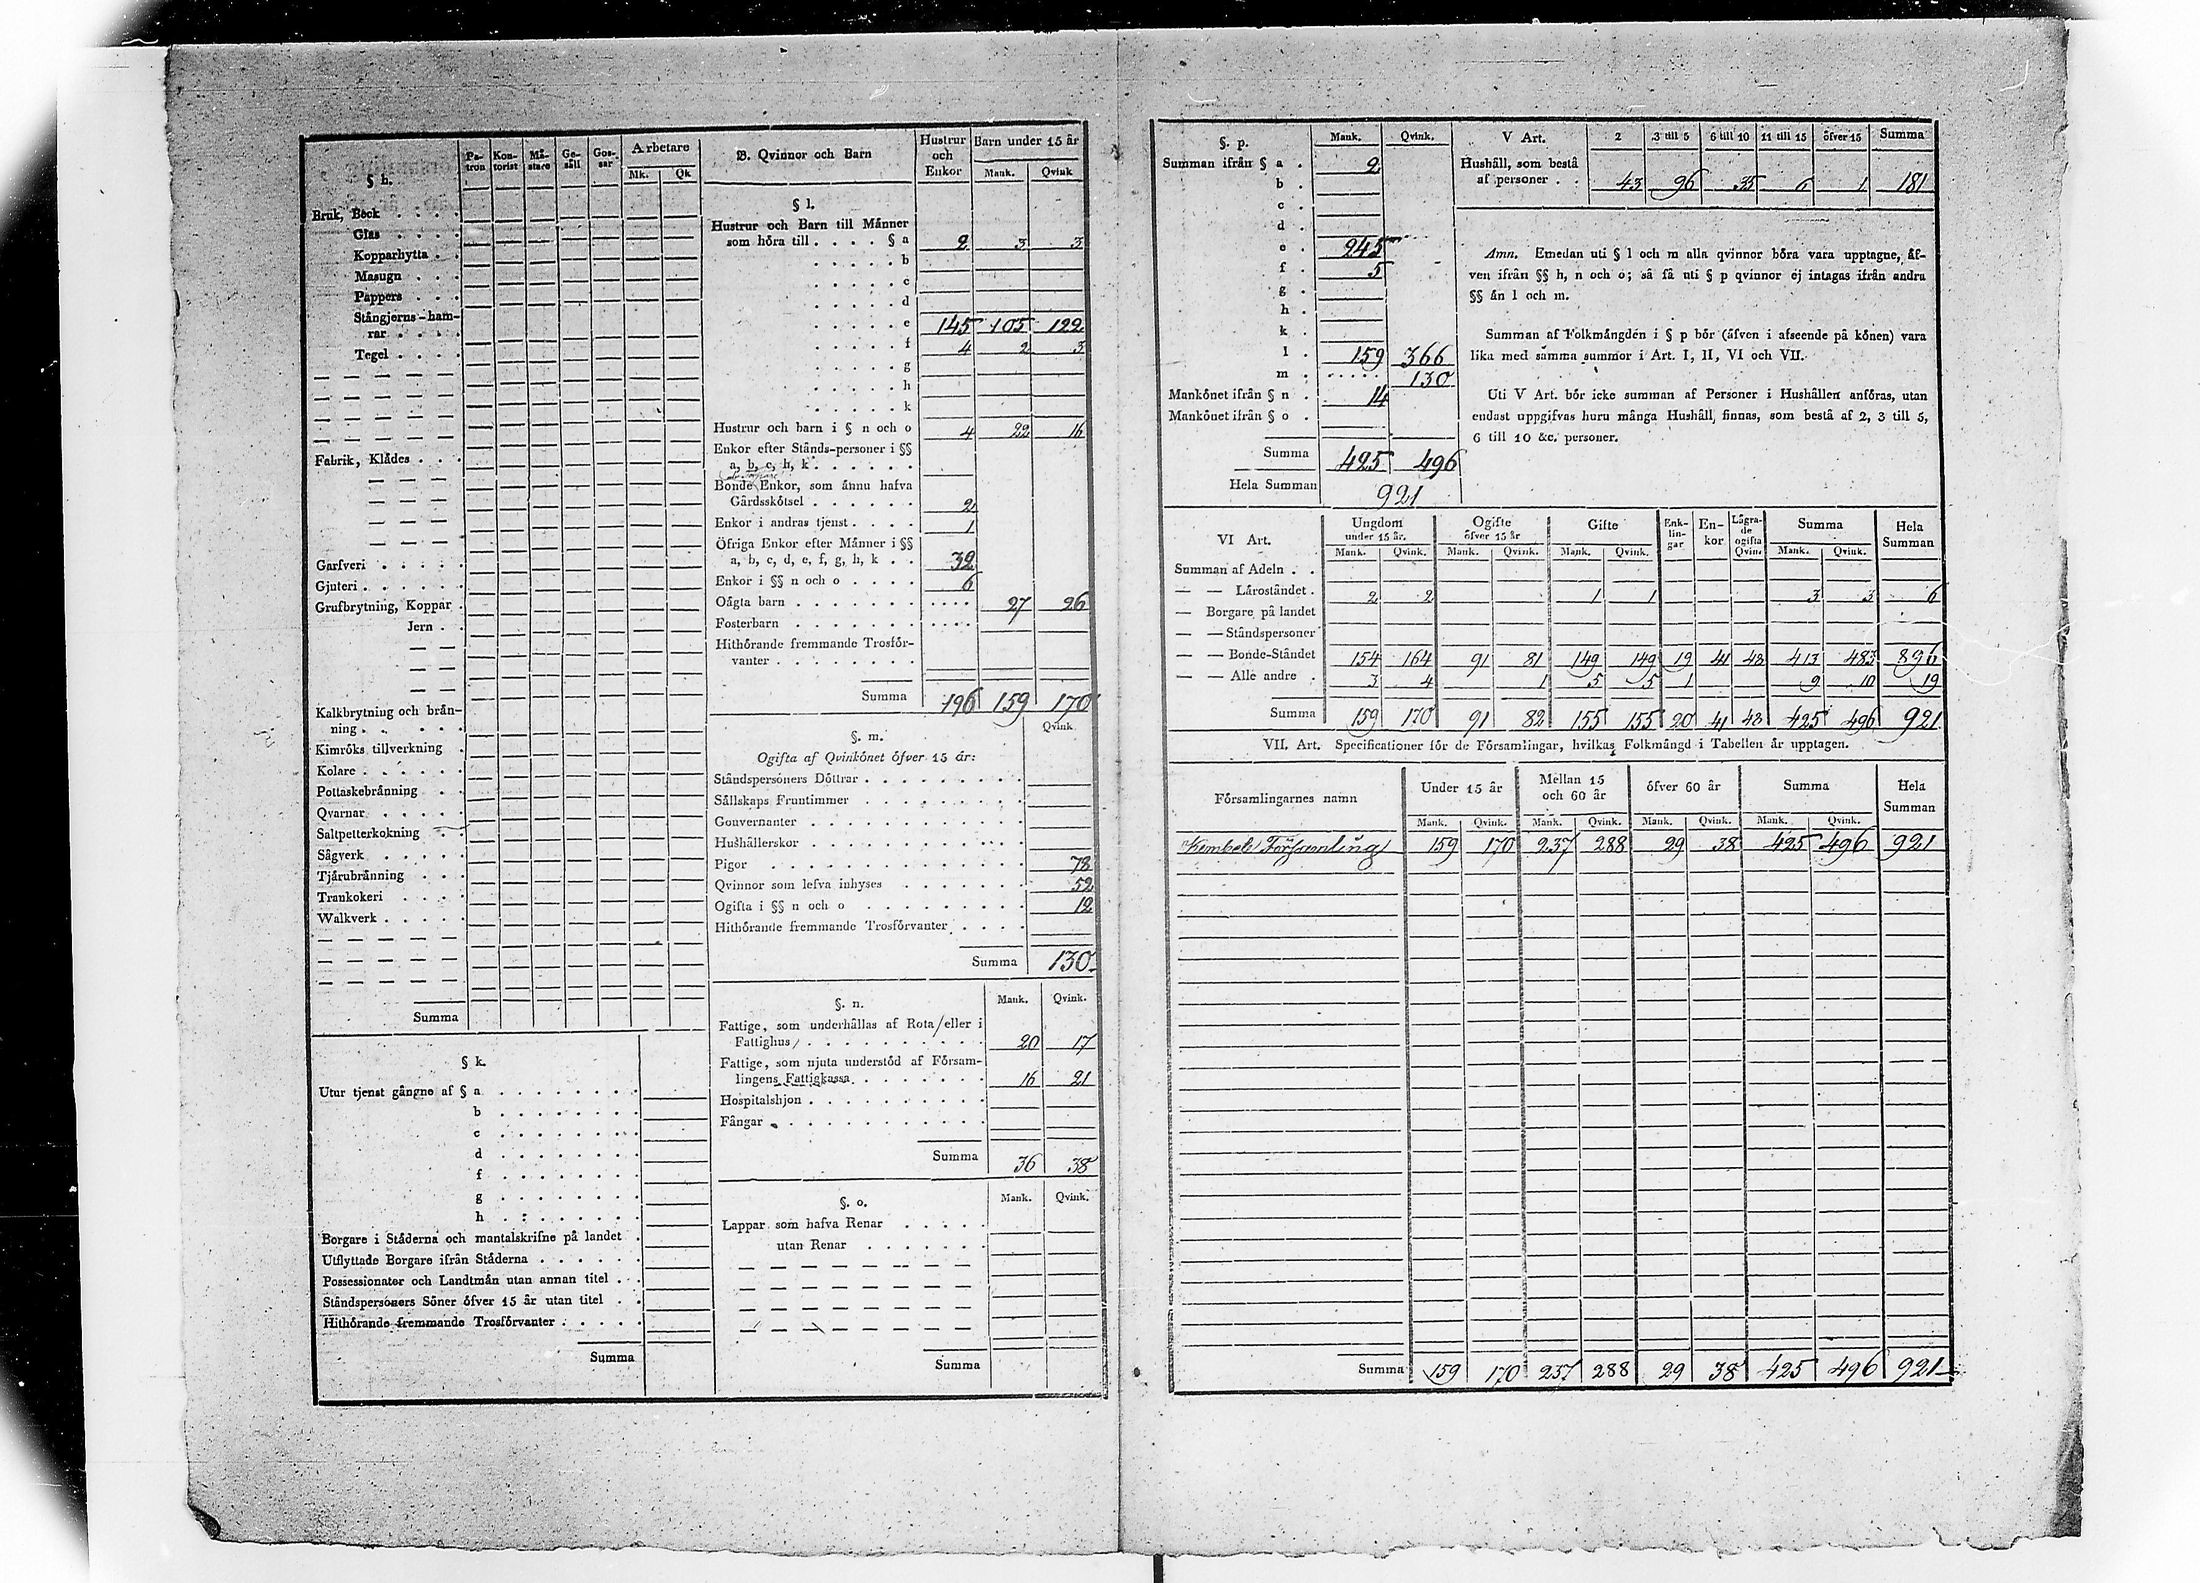 § h.
Patron Kontorist Mästare Gesäll Gossar Arbetare
Mk. Qk
Bruk, Beck . . . .
Glas . . . .
Kopparhytta . .
Masugn . . .
Pappers . . .
Stångjerns-hamrar . . . .
Tegel . . . .
Fabrik, Klädes . . .
Garfveri . . . . .
Gjuteri . . . . .
Grufbrytning, Koppar .
Jern . .
Kalkbrytning och bränning . . . . .
Kimröks tillverkning .
Kolare . . . . .
Pottaskebränning . .
Qvarnar . . . . .
Saltpetterkokning . .
Sågverk . . . . .
Tjärubränning . . .
Trankokeri . . . .
Walkverk . . . . .
Summa
§ k.
Utur tjenst gångne af § a . . . . . . . .
b . . . . . . . .
c . . . . . . . .
d . . . . . . . .
f . . . . . . . .
g . . . . . . . .
h . . . . . . . .
Borgare i Städerna och mantalskrifne på landet .
Utflyttade Borgare ifrån Städerna . . . . . .
Possessionater och Landtmän utan annan titel . .
Ståndspersoners Söner öfver 15 år utan titel . .
Hithörande fremmande Trosförvanter . . . . .
Summa
B. Qvinnor och Barn
Hustrur och Enkor
Barn under 15 år
Mank. Qvink
§ l.
Hustrur och Barn till Männer
som höra till . . . . § a 2 3 3
. . . . . b
. . . . . c
. . . . . d
. . . . . e 145 105 122
. . . . . f 4 2 3
. . . . . g
. . . . . h
. . . . . k
Hustrur och barn i § n och o 4 22 16
Enkor efter Stånds-personer i §§
a, b, c, h, k . . . . . .
Bonde Enkor, som ännu hafva
Gårdsskötsel . . . . . . 2
Enkor i andras tjenst . . . . 1
Öfriga Enkor efter Männer i §§
a, b, c, d, e, f, g, h, k . . 32
Enkor i §§ n och o . . . . 6
Oägta barn . . . . . . . . . . . 27 26
Fosterbarn . . . . . . . . . . .
Hithörande fremmande Trosförvanter . . . . . . . .
Summa 196 159 170
§. m.
Qvink
Ogifta af Qvinkönet öfver 15 år:
Ståndspersoners Döttrar . . . . . . . . .
Sällskaps Fruntimmer . . . . . . . . .
Gouvernanter . . . . . . . . . . .
Hushållerskor . . . . . . . . . . .
Pigor . . . . . . . . . . . . 78
Qvinnor som lefva inhyses . . . . . . . 52
Ogifta i §§ n och o . . . . . . . . . 12
Hithörande fremmande Trosförvanter . . . .
Summa 130
§. n.
Mank. Qvink.
Fattige, som underhållas af Rota/eller i
Fattighus/ . . . . . . . . . . 20 17
Fattige, som njuta understöd af Församlingens Fattigkassa . . . . . . . . 16 21
Hospitalshjon . . . . . . . . . .
Fångar . . . . . . . . . . . .
Summa 36 38
§. o.
Mank. Qvink.
Lappar som hafva Renar . . . . .
utan Renar . . . . . . .
Summa
§. p.
Mank. Qvink.
Summan ifrån § a . 2
b .
c .
d .
e . 245
f . 5
g .
h .
k .
l . 159 366
m . . . . . . 130
Mankönet ifrån § n . 14
Mankönet ifrån § o .
Summa 425 496
Hela Summan 921
V Art. 2 3 till 5 6 till 10 11 till 15 öfver 15 Summa
Hushåll, som bestå
af personer . . 43 96 35 6 1 181
Anm. Emedan uti § l och m alla qvinnor böra vara upptagne, äf-
ven ifrån §§ h, n och o; så få uti § p qvinnor ej intagas ifrån andra
§§ än l och m.
Summan af Folkmängden i § p bör (äfven i afseende på könen) vara
lika med samma summor i Art. I, II, VI och VII.
Uti V Art. bör icke summan af Personer i Hushållen anföras, utan
endast uppgifvas huru många Hushåll finnas, som bestå af 2, 3 till 5,
6 till 10 &c. personer.
VI Art.
Ungdom under 15 år. Ogifte öfver 15 år Gifte Enklingar Enkor Lägrade ogifta Qvin. Summa Hela Summan
Mank. Qvink. Mank. Qvink. Mank. Qvink. Mank. Qvink.
Summan af Adeln . .
— — Läroståndet . 2 2 1 1 3 3 6
— Borgare på landet
— — Ståndspersoner
— — Bonde-Ståndet 154 164 91 81 149 149 19 41 48 413 483 896
— — Alle andre . 3 4 1 5 5 1 9 10 19
Summa 159 170 91 82 155 155 20 41 48 425 496 921
VII. Art. Specificationer för de Församlingar, hvilkas Folkmängd i Tabellen är upptagen.
Församlingarnes namn Under 15 år Mellan 15 och 60 år öfver 60 år Summa Hela Summan
Mank. Qvink. Mank. Qvink. Mank. Qvink. Mank. Qvink.
Kembele Församling 159 170 237 288 29 38 425 496 921
Summa 159 170 237 288 29 38 425 496 921